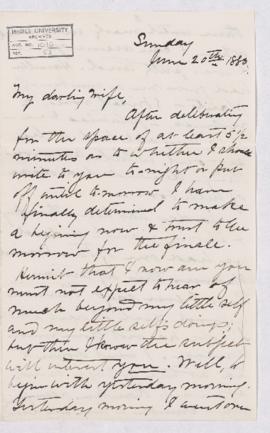 McGILL UNIVERSITY
ARCHIVES
ACC. NO. 1010
REF.
Sunday
June 20th 1880
My darling Wife,
After deliberating
for the space of at least 5½
minutes as to whether I should
write to you tonight or put
off until to-morrow I have
finally determined to make
a begining now & trust to the
morrow for the finale.
that I now are you
must not expect to hear of
much beyond my little self
and my little self's doings,
but then I know the subject
will interest you. Well, to
begin with yesterday morning.
Yesterday morning I went over